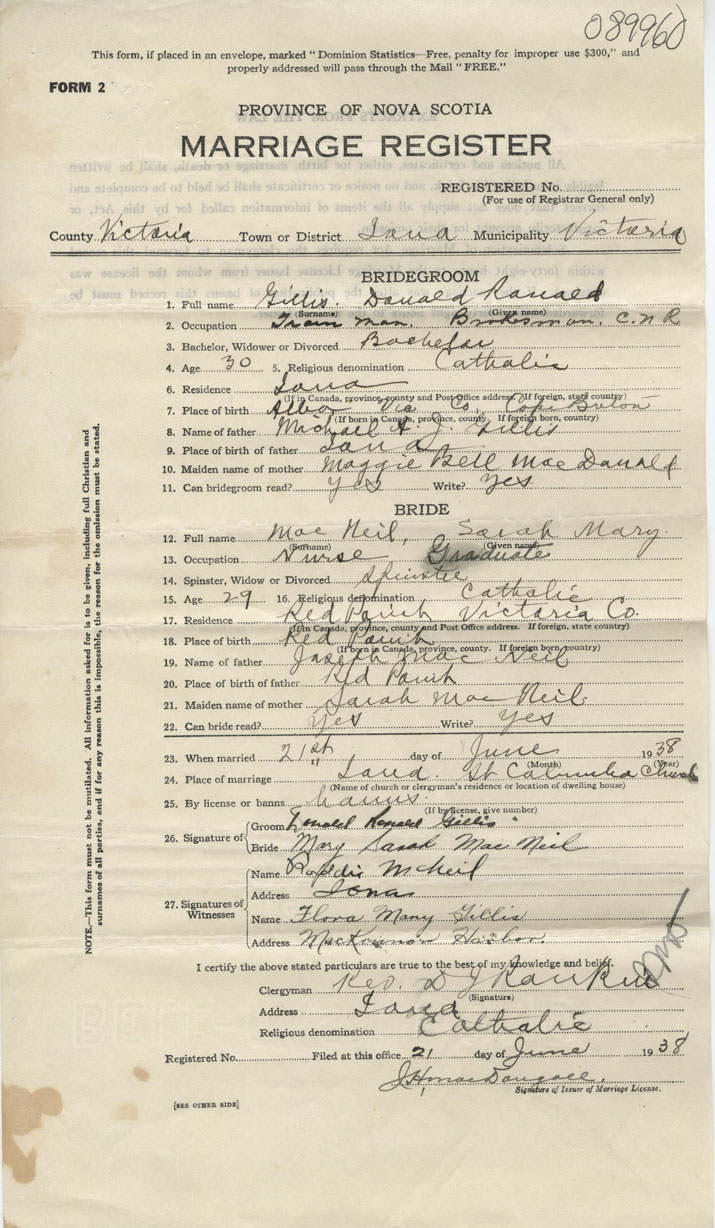 089960
This form, if placed in an envelope, marked "Dominion Statistics—Free, penalty for improper use $300," and
properly addressed will pass through the Mail "FREE."
FORM 2
PROVINCE OF NOVA SCOTIA
MARRIAGE REGISTER
REGISTERED No.
(For use of Registrar General only)
County Victoria Town or District Iona Municipality Victoria
BRIDEGROOM
1. Full name Gillis. Donald Ronald
(Surname) (Given name)
2. Occupation Train man. Brakesman. C.N.R
3. Bachelor, Widower or Divorced Bachelor
4. Age 30 5. Religious denomination Catholic
6. Residence Iona
(If in Canada, province, county and Post Office address. If foreign, state country)
7. Place of birth Vic Co, Cape Breton
(If born in Canada, province, county. If foreign born, country)
8. Name of father Michael A. J. Gillis
9. Place of birth of father Iona
10. Maiden name of mother Maggie Bell Mac Donald
11. Can bridegroom read? yes Write? yes
BRIDE
12. Full name Mac Neil, Sarah Mary.
(Surname) (Given name)
13. Occupation Nurse Graduate
14. Spinster, Widow or Divorced Spinster
15. Age 29 16. Religious denomination Catholic
17. Residence Red Point Victoria Co.
(If in Canada, province, county and Post Office address. If foreign, state country)
18. Place of birth Red Point
(If born in Canada, province, county. If foreign born, country)
19. Name of father Joseph Mac Neil
20. Place of birth of father Red Point
21. Maiden name of mother Sarah Mac Neil.
22. Can bride read? Yes Write? yes
23. When married 21st day of June 1938
(Month) (Year)
24. Place of marriage Iona. St Columba Church
(Name of church or clergyman's residence or location of dwelling house)
25. By license or banns banns
(If by license, give number)
26. Signature of
Groom Donald Ronald Gillis
Bride Mary Sarah Mac Neil
27. Signatures of Witnesses
Name McNeil
Address Iona
Name Flora Mary Gillis
Address MacKinnon Harbor.
I certify the above stated particulars are true to the best of my knowledge and belief.
Clergyman Rev. D J Rankin
(Signature)
Address Iona
Religious denomination Catholic
Registered No. Filed at this office 21 day of June 1938
J H MacDougall.
Signature of Issuer of Marriage License.
[SEE OTHER SIDE]
NOTE.—This form must not be mutilated. All information asked for is to be given, including full Christian and
surnames of all parties, and if for any reason this is impossible, the reason for the omission must be stated.